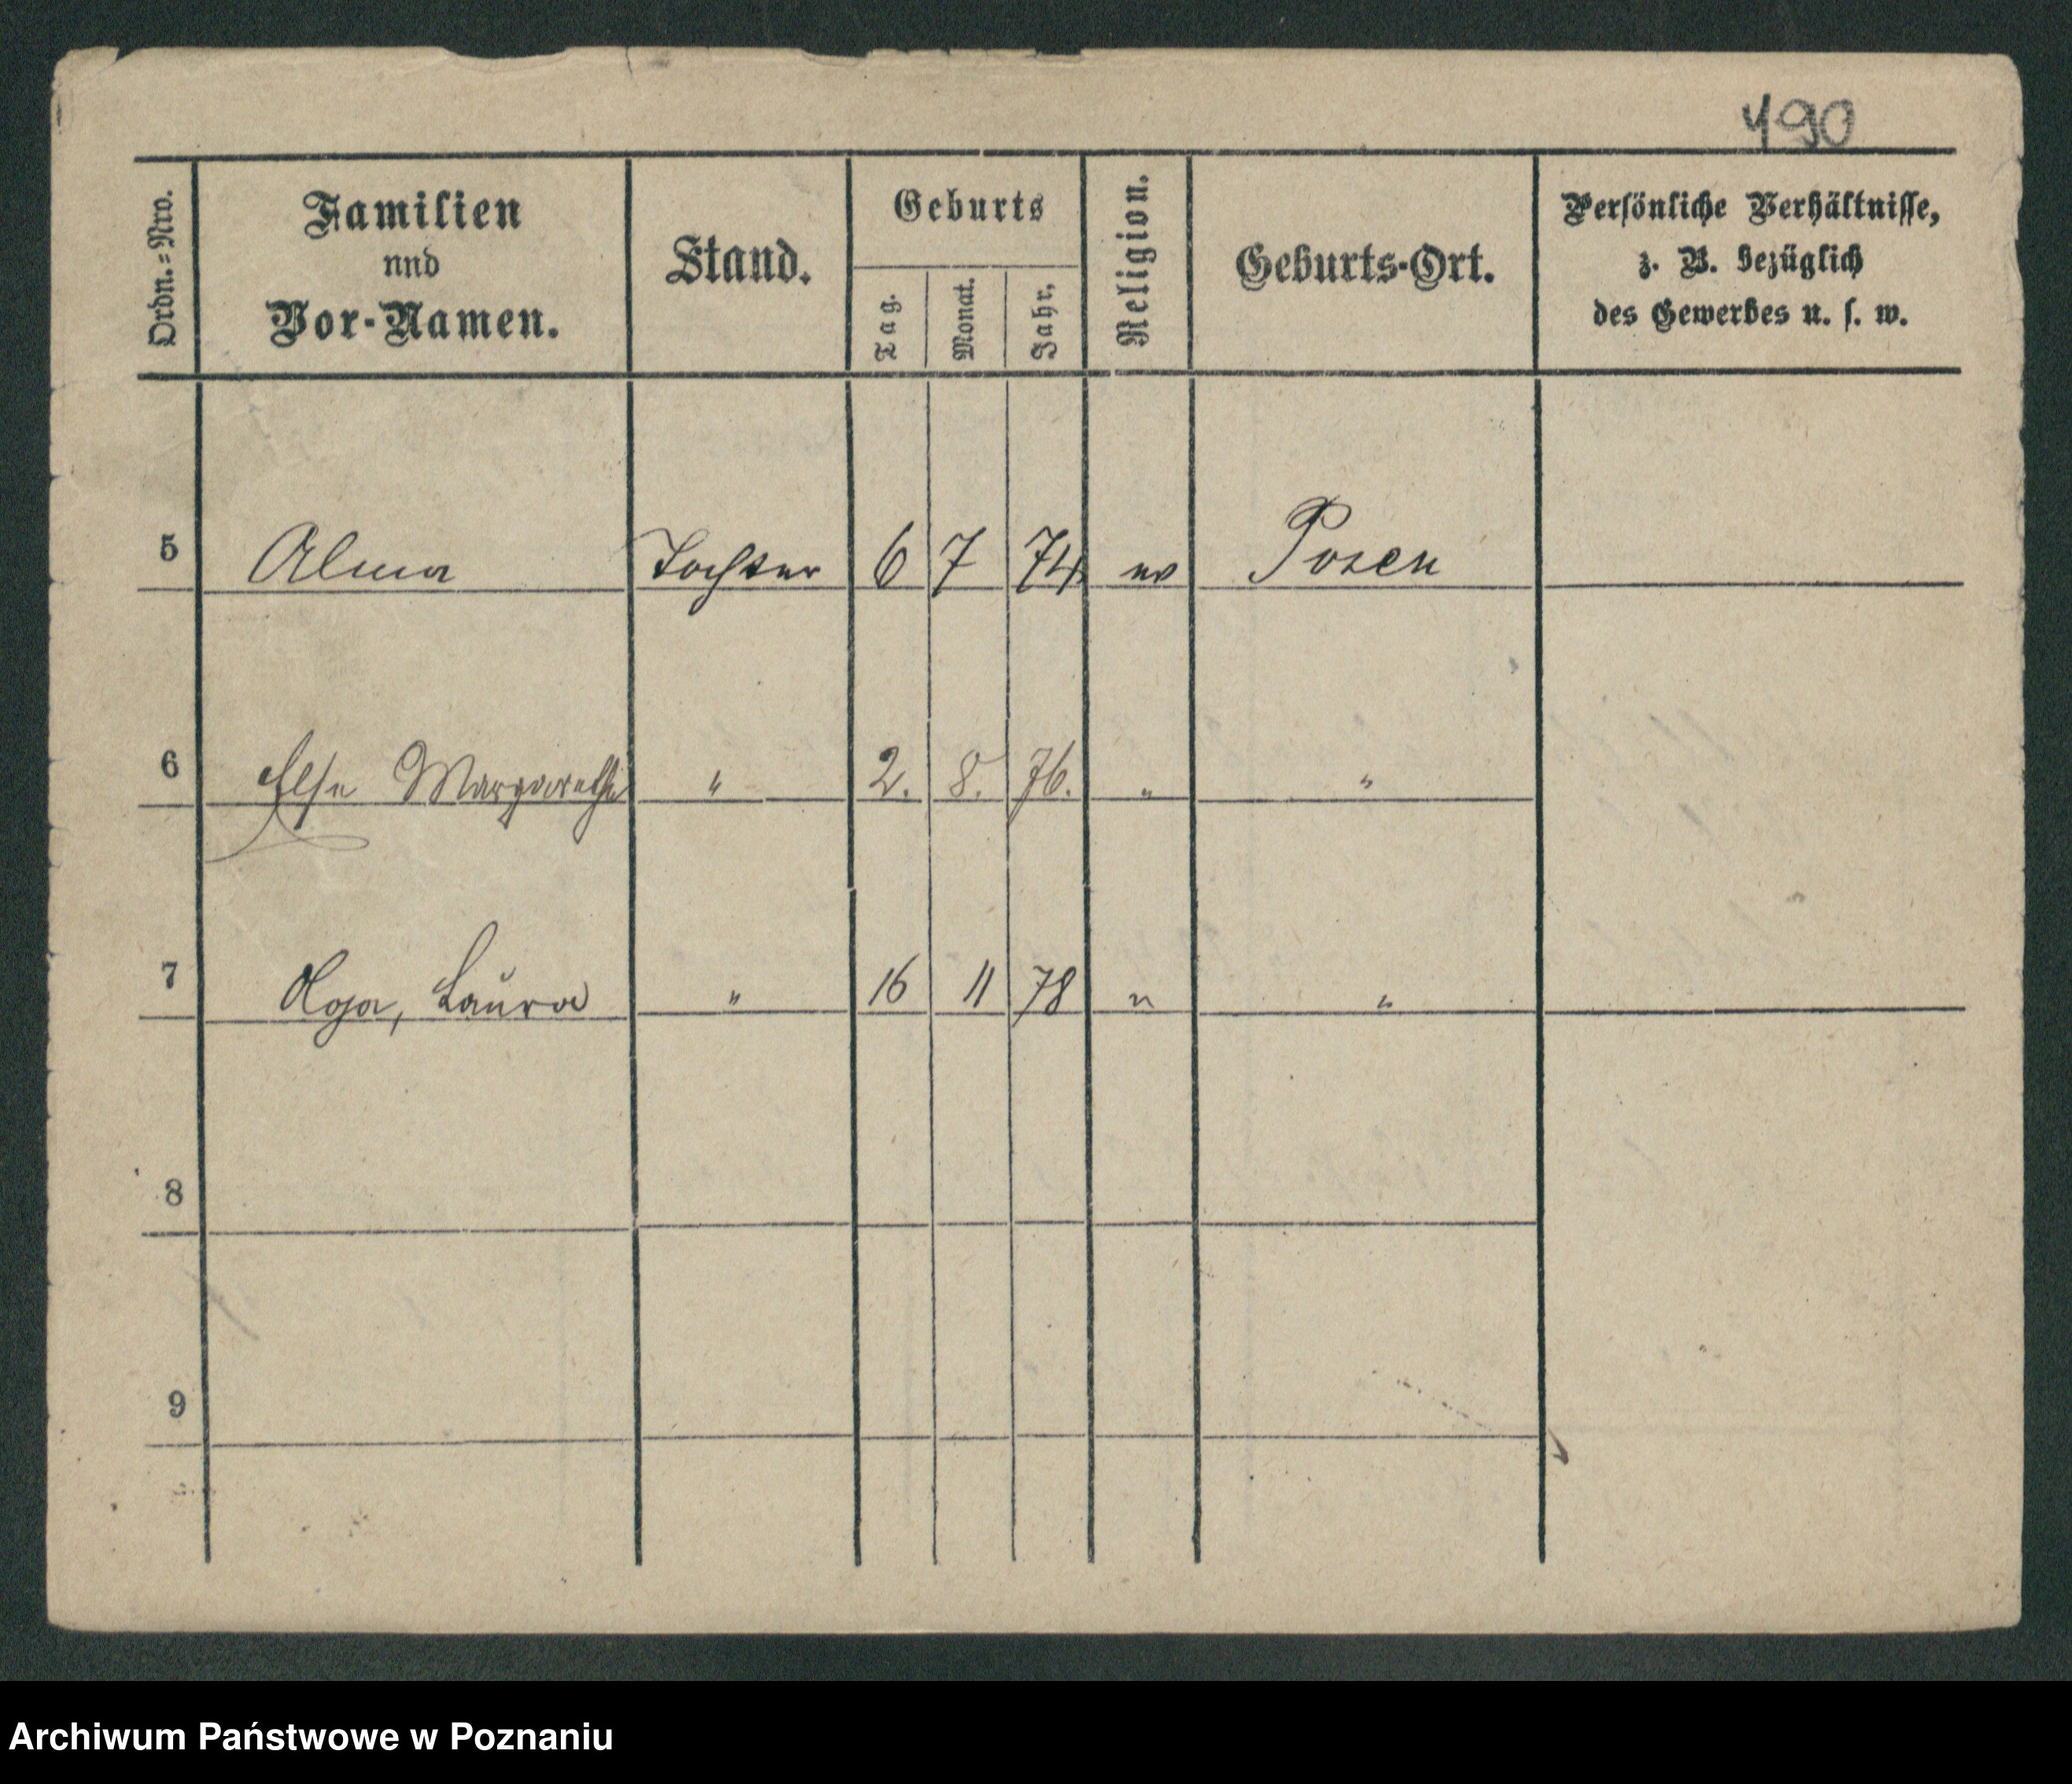 490
Ordn.=Nro.
Familien
nnd
Vor-Namen.
Stand.
Geburts
Tag.
Monat.
Jahr.
Religion.
Geburts-Ort.
Persönliche Verhältnisse,
z. B. bezüglich
des Gewerbes u. s. w.
5 Alma Tochter 6 7 74 ev Posen
6 Else Margarethe " 2. 8. 76. " "
7 Olga, Laura " 16 11 78 " "
8
9
Archiwum Państwowe w Poznaniu